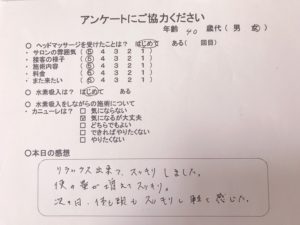 アンケートにご協力ください
年齢 40 歳代 ( 男 女 )
○ ヘッドマッサージを受けたことは? はじめて ある( 回目)
・サロンの雰囲気 ( 5 4 3 2 1 )
・接客の様子 ( 5 4 3 2 1 )
・施術内容 ( 5 4 3 2 1 )
・料金 ( 5 4 3 2 1 )
・また来たい ( 5 4 3 2 1 )
○ 水素吸入は? はじめて ある
○ 水素吸入をしながらの施術について
・カニューレは? □ 気にならない
☑ 気になるが大丈夫
□ どちらでもよい
□ できればやりたくない
□ やりたくない
○本日の感想
リラックス出来て、スッキリしました。
便の量が増えてスッキリ。
次の日、体も頭もスッキリし軽く感じた。